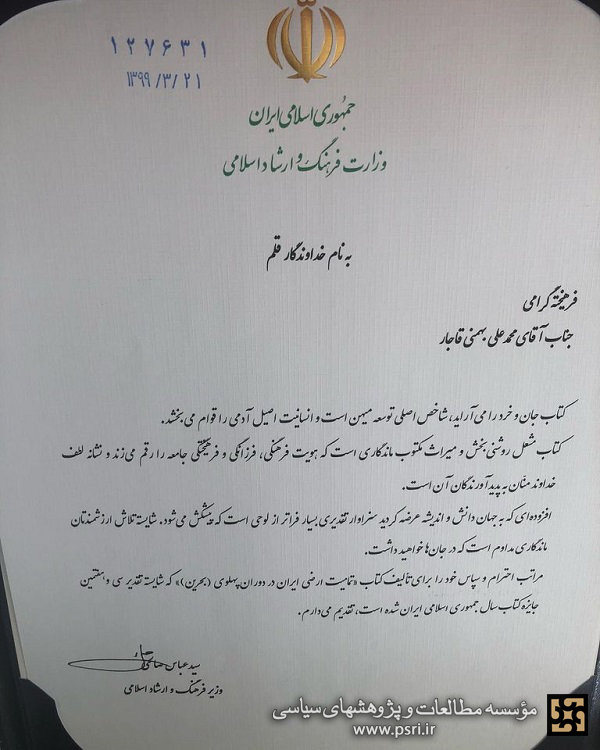 ۱۲۷۶۳۱
۱۳۹۹/۳/۲۱
جمهوری اسلامی ایران
وزارت فرهنگ و ارشاد اسلامی
به نام خداوندگار قلم
فرهیخته گرامی
جناب آقای محمدعلی بهمنی قاجار
کتاب جان و خرد را می آراید، شاخص اصلی توسعه میهن است و انسانیت اصیل آدمی را قوام می بخشد.
کتاب مشعل روشنی بخش و میراث مکتوب ماندگاری است که هویت فرهنگی، فرزانگی و فرهیختگی جامعه را رقم می زند و نشانه لطف
خداوند منّان به پدیدآورندگان آن است.
افزوده‌ای که به جهان دانش و اندیشه عرضه کردید سزاوار تقدیری بسیار فراتر از لوحی است که پیشکش می‌شود. شایسته تلاش ارزشمندتان
ماندگاری مداوم است که در جان‌ها خواهید داشت.
مراتب احترام و سپاس خود را برای تألیف کتاب «تمامیت ارضی ایران در دوران پهلوی (بحرین)» که شایسته تقدیر سی و هفتمین
جایزه کتاب سال جمهوری اسلامی ایران شده است، تقدیم می‌دارم.
سید عباس صالحی
وزیر فرهنگ و ارشاد اسلامی
مؤسسه مطالعات و پژوهشهای سیاسی
www.psri.ir